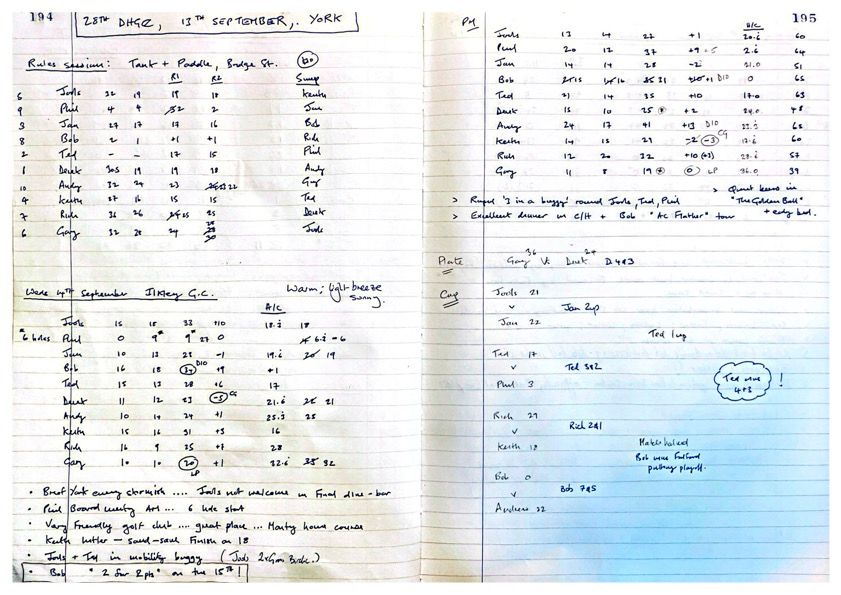 194
28TH DHGR, 13TH SEPTEMBER, YORK
Rules session: Tank + Paddle, Bridge St.
R1 R2 Sweep
5 Jools 32 19 19 18 Keith
9 Phil 4 4 2 Jan
3 Jan 27 17 17 16 Bob
8 Bob 2 1 +1 +1 Rich
2 Ted - - 17 15 Phil
1 Derek 305 19 19 28 Andy
10 Andy 32 24 23 22 Gay
4 Keith 27 16 15 15 Ted
7 Rich 36 26 25 25 Derek
6 Gay 32 28 24 Jools
Weds 4TH September Ilkley G.C. Warm; light breeze
sunny.
A/C
Jools 15 18 33 +10 18.5 18
*6 holes Phil 0 9* 9* 27 0 6.5 - 6
Jan 10 13 23 -1 19.6 20 19
Bob 16 18 34 D10 +9 +1
Ted 15 13 28 +6 17
Derek 11 12 23 -5 CG 21.6 25 21
Andy 10 14 24 +1 25.5 25
Keith 15 16 31 +5 16
Rich 16 9 25 +7 28
Gay 10 10 20 +1 32.6 35 32
LP
• Brief York enemy skirmish .... Jools not welcome in final dine-bar
• Phil Board meeting AM ... 6 hole start
• Very friendly golf club .... great place ... Monty home course
• Keith hitler - sand-sand finish on 18
• Jools + Ted in mobility buggy (Jools 2 x Gross Birdie.)
• Bob "2 for 2pts" on the 15TH!
195
PM A/C
Jools 13 14 27 +1 20.6 60
Phil 20 12 37 +9 2.6 64
Jan 14 14 28 -2 21.0 51
Bob 15 16 31 +1 D10 0 65
Ted 21 14 35 +10 17.0 63
Derek 15 10 25 +2 24.0 48
Andy 24 17 41 +13 D10 65
Keith 14 15 29 -2 -3 CG 17.6 60
Rich 12 20 32 +10 (+3) 28.6 57
Gay 11 8 19 0 LP 36.0 39
> Quiet beers in
"The Golden Ball"
+ early bed.
> Rapid '3 in a buggy' round Jools, Ted, Phil
> Excellent dinner in C/H + Bob "AC Flather" tour
Plate Gay 36 V: Derek 24 D. 4&3
Cup
Jools 21
v Jan 2up
Jan 22
Ted 1up
Ted 17
v Ted 3&2
Phil 3
Ted wins
4+3 !
Rich 29
v Rich 2&1
Keith 18 Match halved
Bob wins
putting playoff.
Bob 0
v Bob 7&5
Andrew 22